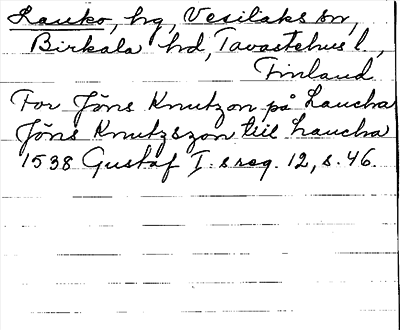 Lauko, hg, Vesilaks sn,
Birkala hd, Tavastehus l.,
Finland
For Jöns Knutzon på Laucha
Jöns Knutzszon till Laucha
1538 Gustaf I. s reg. 12, s. 46.